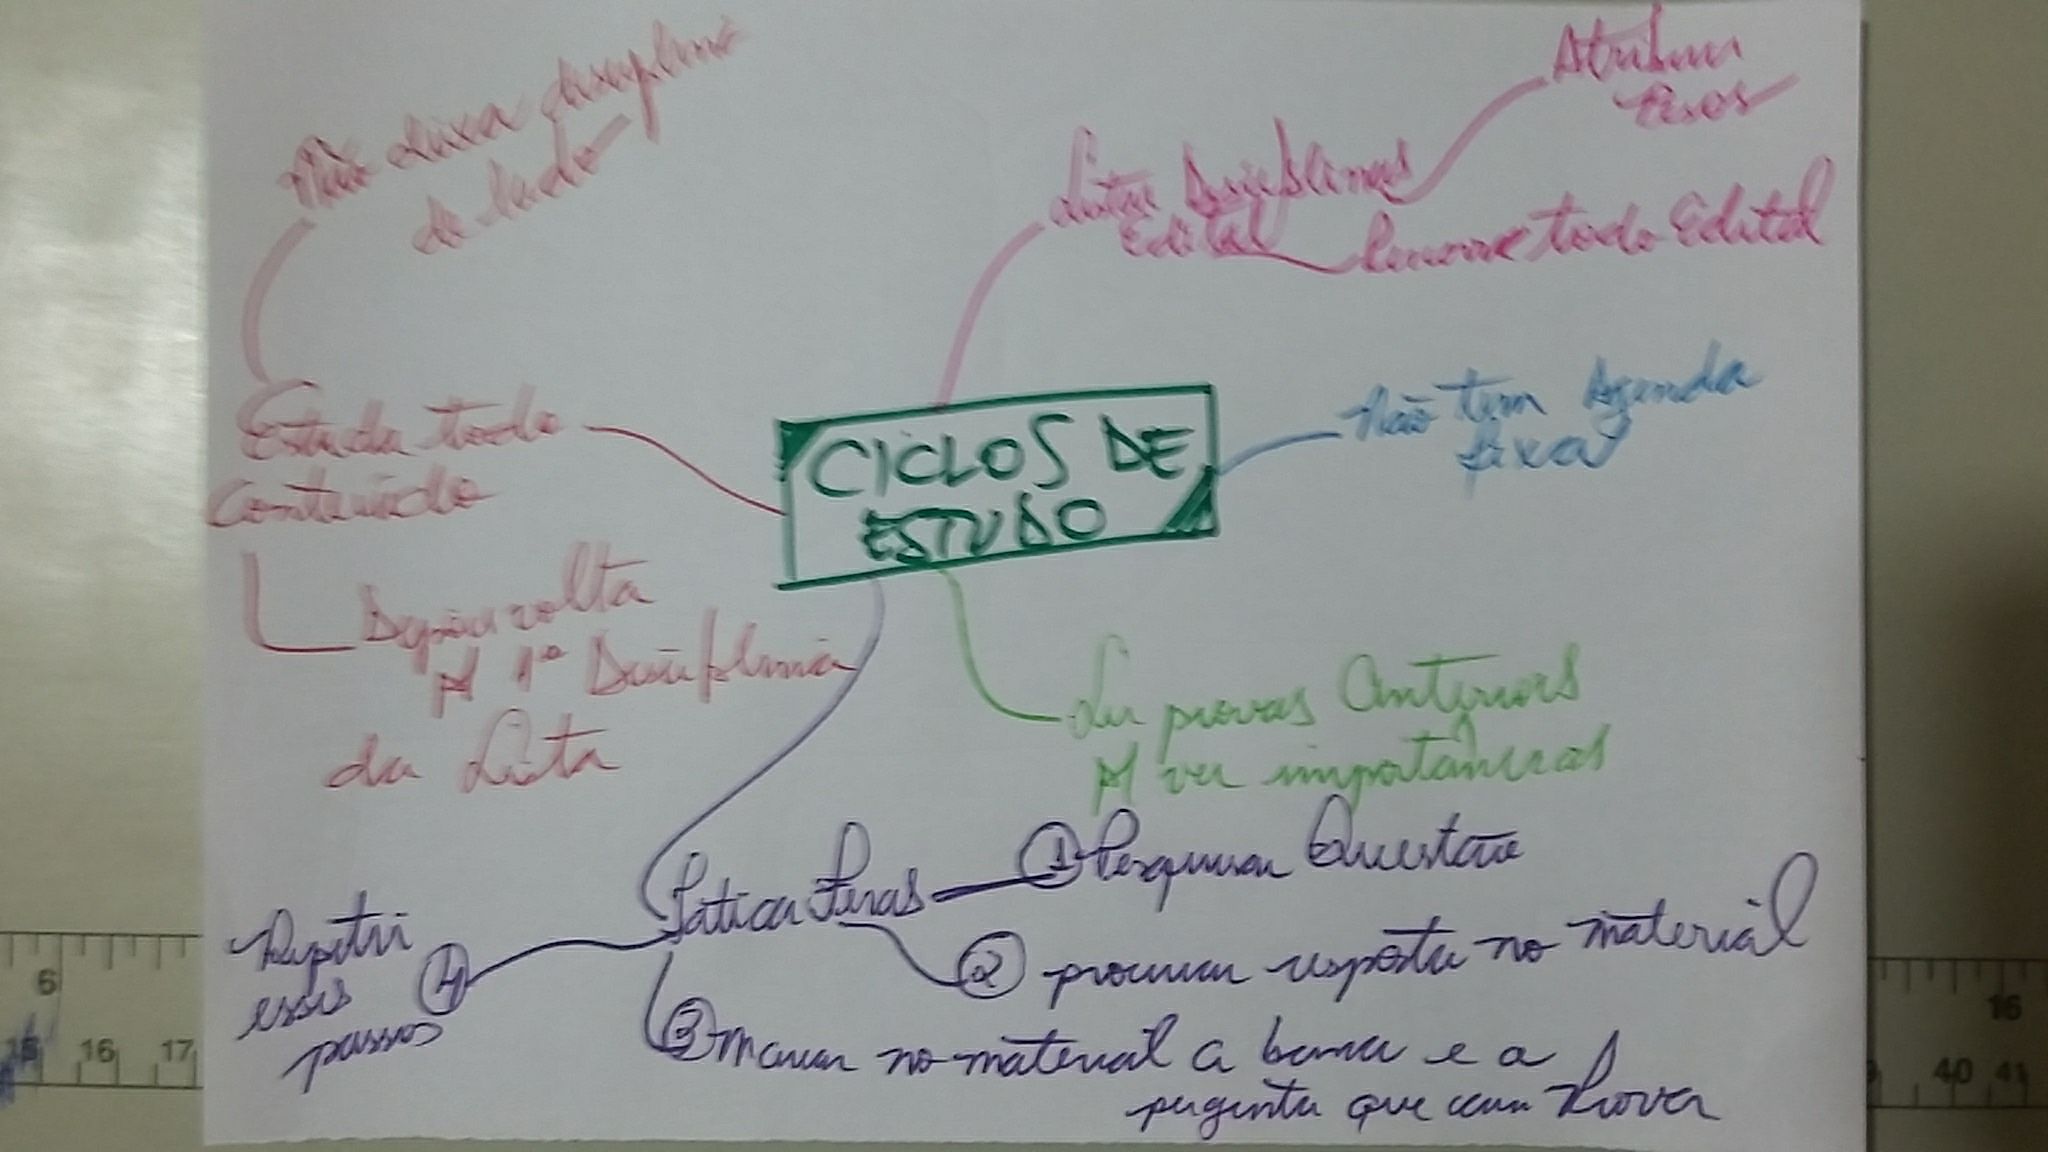 CICLOS DE
ESTUDO
Listar Disciplinas
Edital
Atribuir
Pesos
Percorre todo Edital
Não tem Agenda
fixa
Ler provas Anteriores
P/ ver importâncias
Tática Feras
① Pesquisar Questão
② procurar resposta no material
③ Marcar no material a banca e a
pergunta que caiu Prova
④
Repetir
esses
passos
Estuda todo
Conteúdo
Não deixa disciplina
de lado
Depois volta
P/ 1ª Disciplina
da Lista
6
16 17
16
40 41